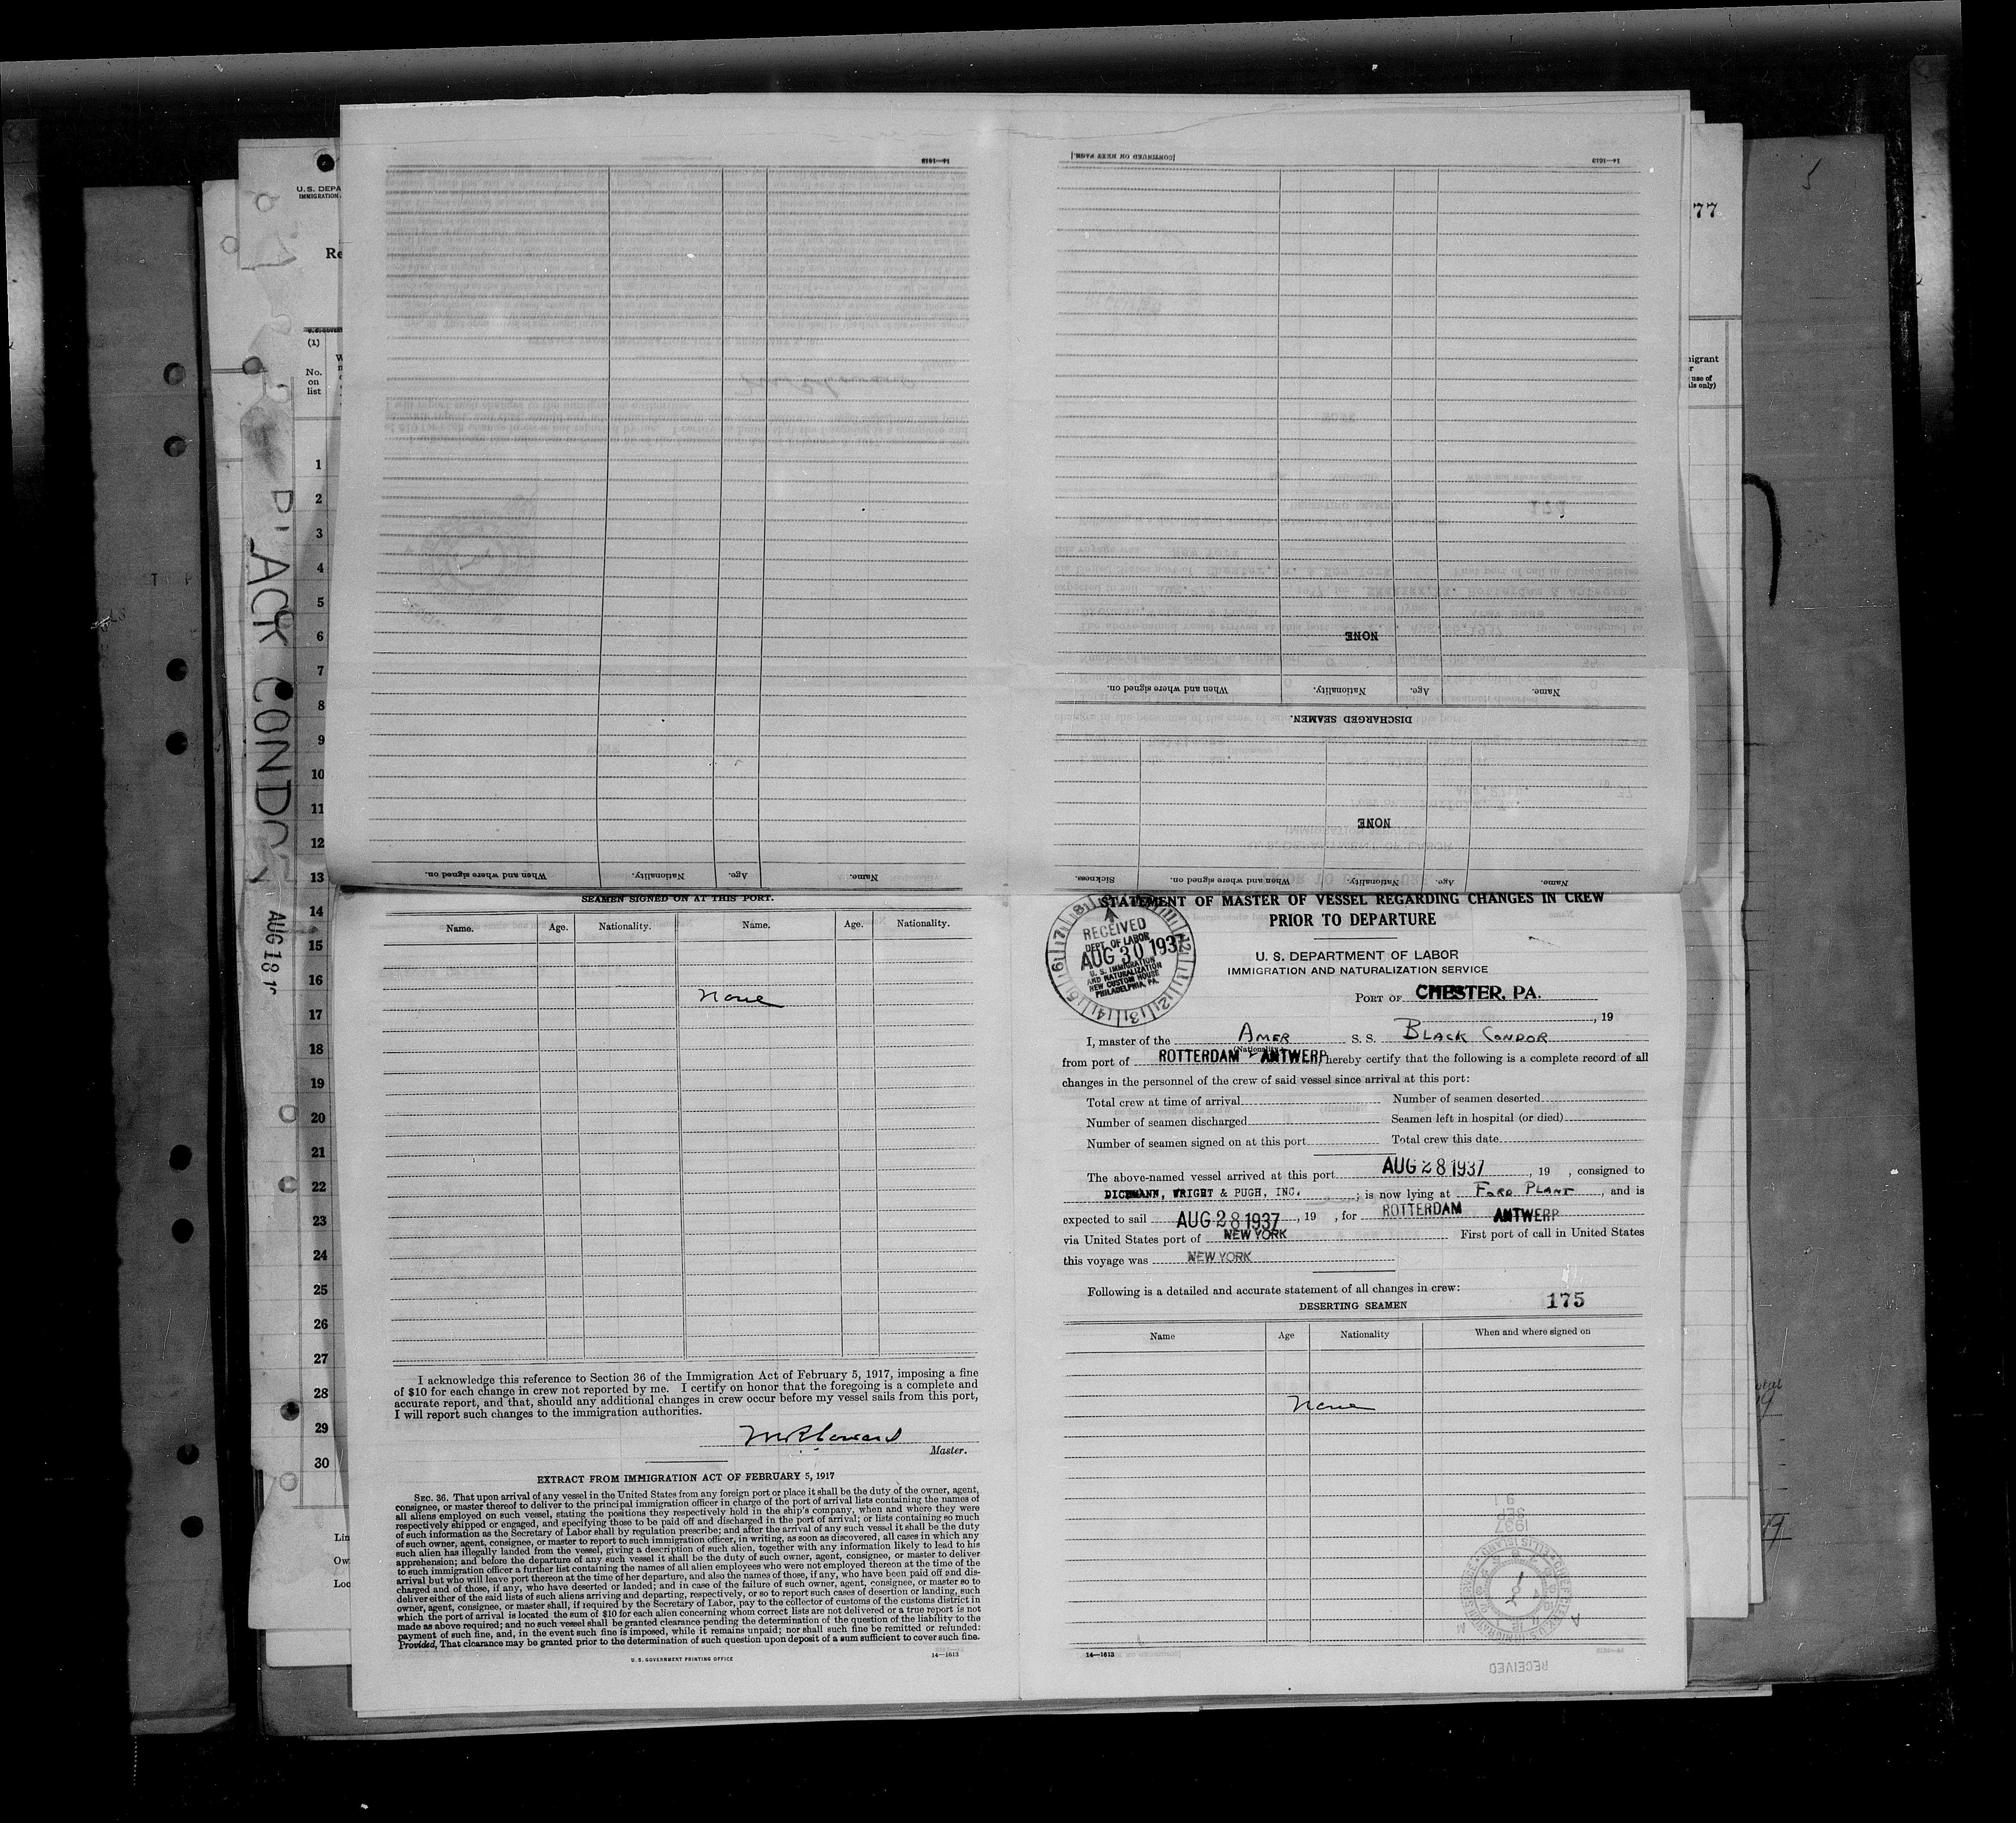 U.S. DEPA
IMMIGRATION
Re
77
(1)
No.
on
list
1
2
3
4
5
6
7
8
9
10
11
12
13
14
15
16
17
18
19
20
21
22
23
24
25
26
27
28
29
30
BLACK CONDOR
AUG 18
14—1613
When and where signed on.
Nationality.
Age.
Name.
[CONTINUED ON NEXT PAGE.]
14—1613
NONE
When and where signed on.
Nationality.
Age.
Name.
DISCHARGED SEAMEN.
NONE
Sickness.
When and where signed on.
Nationality.
Age.
Name.
SEAMEN SIGNED ON AT THIS PORT.
Name. Age. Nationality. Name. Age. Nationality.
None
I acknowledge this reference to Section 36 of the Immigration Act of February 5, 1917, imposing a fine
of $10 for each change in crew not reported by me. I certify on honor that the foregoing is a complete and
accurate report, and that, should any additional changes in crew occur before my vessel sails from this port,
I will report such changes to the immigration authorities.
Master.
EXTRACT FROM IMMIGRATION ACT OF FEBRUARY 5, 1917
SEC. 36. That upon arrival of any vessel in the United States from any foreign port or place it shall be the duty of the owner, agent,
consignee, or master thereof to deliver to the principal immigration officer in charge of the port of arrival lists containing the names of
all aliens employed on such vessel, stating the positions they respectively hold in the ship's company, when and where they were
respectively shipped or engaged, and specifying those to be paid off and discharged in the port of arrival; or lists containing so much
of such information as the Secretary of Labor shall by regulation prescribe; and after the arrival of any such vessel it shall be the duty
of such owner, agent, consignee, or master to report to such immigration officer, in writing, as soon as discovered, all cases in which any
such alien has illegally landed from the vessel, giving a description of such alien, together with any information likely to lead to his
apprehension; and before the departure of any such vessel it shall be the duty of such owner, agent, consignee, or master to deliver
to such immigration officer a further list containing the names of all alien employees who were not employed thereon at the time of the
arrival but who will leave port thereon at the time of her departure, and also the names of those, if any, who have been paid off and dis-
charged and of those, if any, who have deserted or landed; and in case of the failure of such owner, agent, consignee, or master so to
deliver either of the said lists of such aliens arriving and departing, respectively, or so to report such cases of desertion or landing, such
owner, agent, consignee, or master shall, if required by the Secretary of Labor, pay to the collector of customs of the customs district in
which the port of arrival is located the sum of $10 for each alien concerning whom correct lists are not delivered or a true report is not
made as above required; and no such vessel shall be granted clearance pending the determination of the question of the liability to the
payment of such fine, and, in the event such fine is imposed, while it remains unpaid; nor shall such fine be remitted or refunded:
Provided, That clearance may be granted prior to the determination of such question upon deposit of a sum sufficient to cover such fine.
U. S. GOVERNMENT PRINTING OFFICE
14—1613
STATEMENT OF MASTER OF VESSEL REGARDING CHANGES IN CREW
PRIOR TO DEPARTURE
RECEIVED
DEPT. OF LABOR
AUG 30 1937
U. S. IMMIGRATION
AND NATURALIZATION
NEW CUSTOM HOUSE
PHILADELPHIA, PA.
U. S. DEPARTMENT OF LABOR
IMMIGRATION AND NATURALIZATION SERVICE
PORT OF CHESTER, PA.
, 19
I, master of the AMER S. S. BLACK CONDOR
(Nationality)
from port of ROTTERDAM & ANTWERP, hereby certify that the following is a complete record of all
changes in the personnel of the crew of said vessel since arrival at this port:
Total crew at time of arrival Number of seamen deserted
Number of seamen discharged Seamen left in hospital (or died)
Number of seamen signed on at this port Total crew this date
The above-named vessel arrived at this port AUG 28 1937, 19 , consigned to
DICHMANN, WRIGHT & PUGH, INC. ; is now lying at FORD PLANT, and is
expected to sail AUG 28 1937, 19 , for ROTTERDAM ANTWERP
via United States port of NEW YORK First port of call in United States
this voyage was NEW YORK
Following is a detailed and accurate statement of all changes in crew:
DESERTING SEAMEN 175
Name Age Nationality When and where signed on
None
1937
SEP
14—1613
RECEIVED